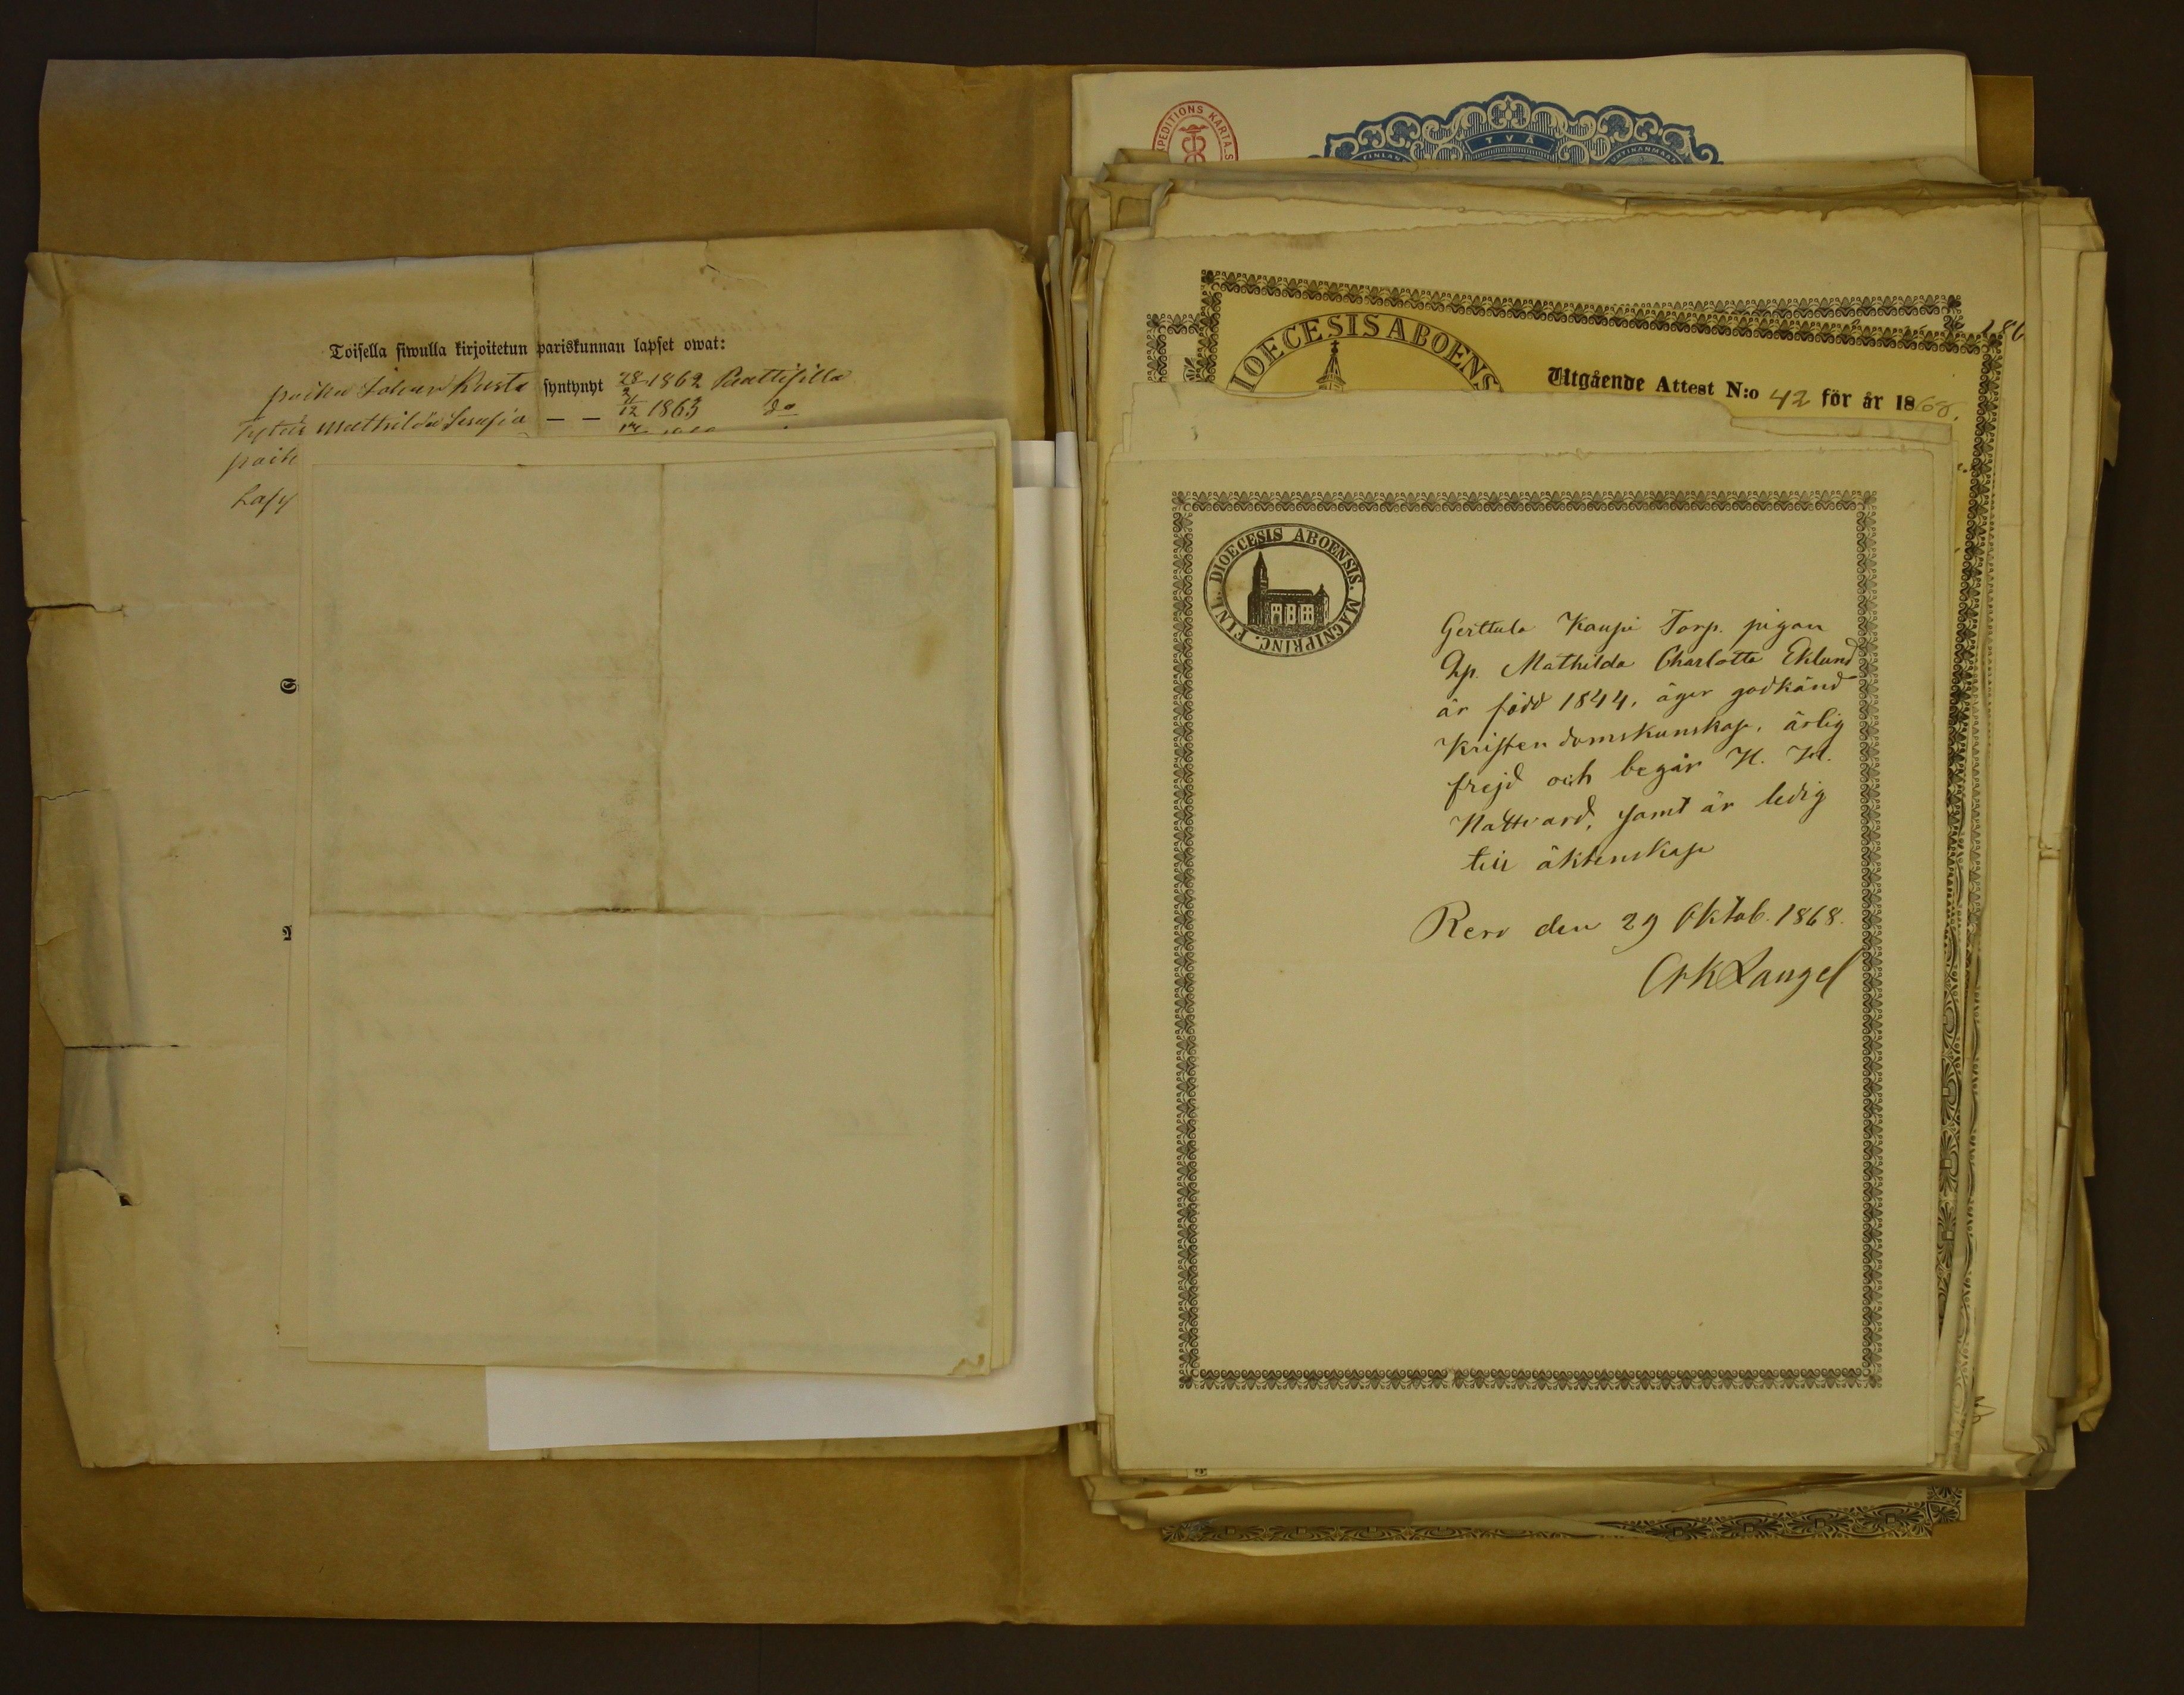 Toisella siwulla kirjoitetun pariskunnan lapset owat:
poika Johan Kusta syntynyt 28/2 1862 Paattisilla
Tytär Mathilda Serafia — — 11/12 1863 do
poik
Lapy
PEDITIONS KARTA.S
TVÅ
FINLAN
IOECESIS ABOENS
Utgående Attest N:o 42 för år 1868.
186
FINL. DIOECESIS ABOENSIS. MAGNIPRINC.
Gerttula Kaupi Torp. pigan
Qp. Mathilda Charlotta Eklund
är född 1844, äger godkänd
Kristendomskunskap, ärlig
frejd och begår H. H.
Nattvard, samt är ledig
till äktenskap
Reso den 29 Oktob. 1868.
Langel